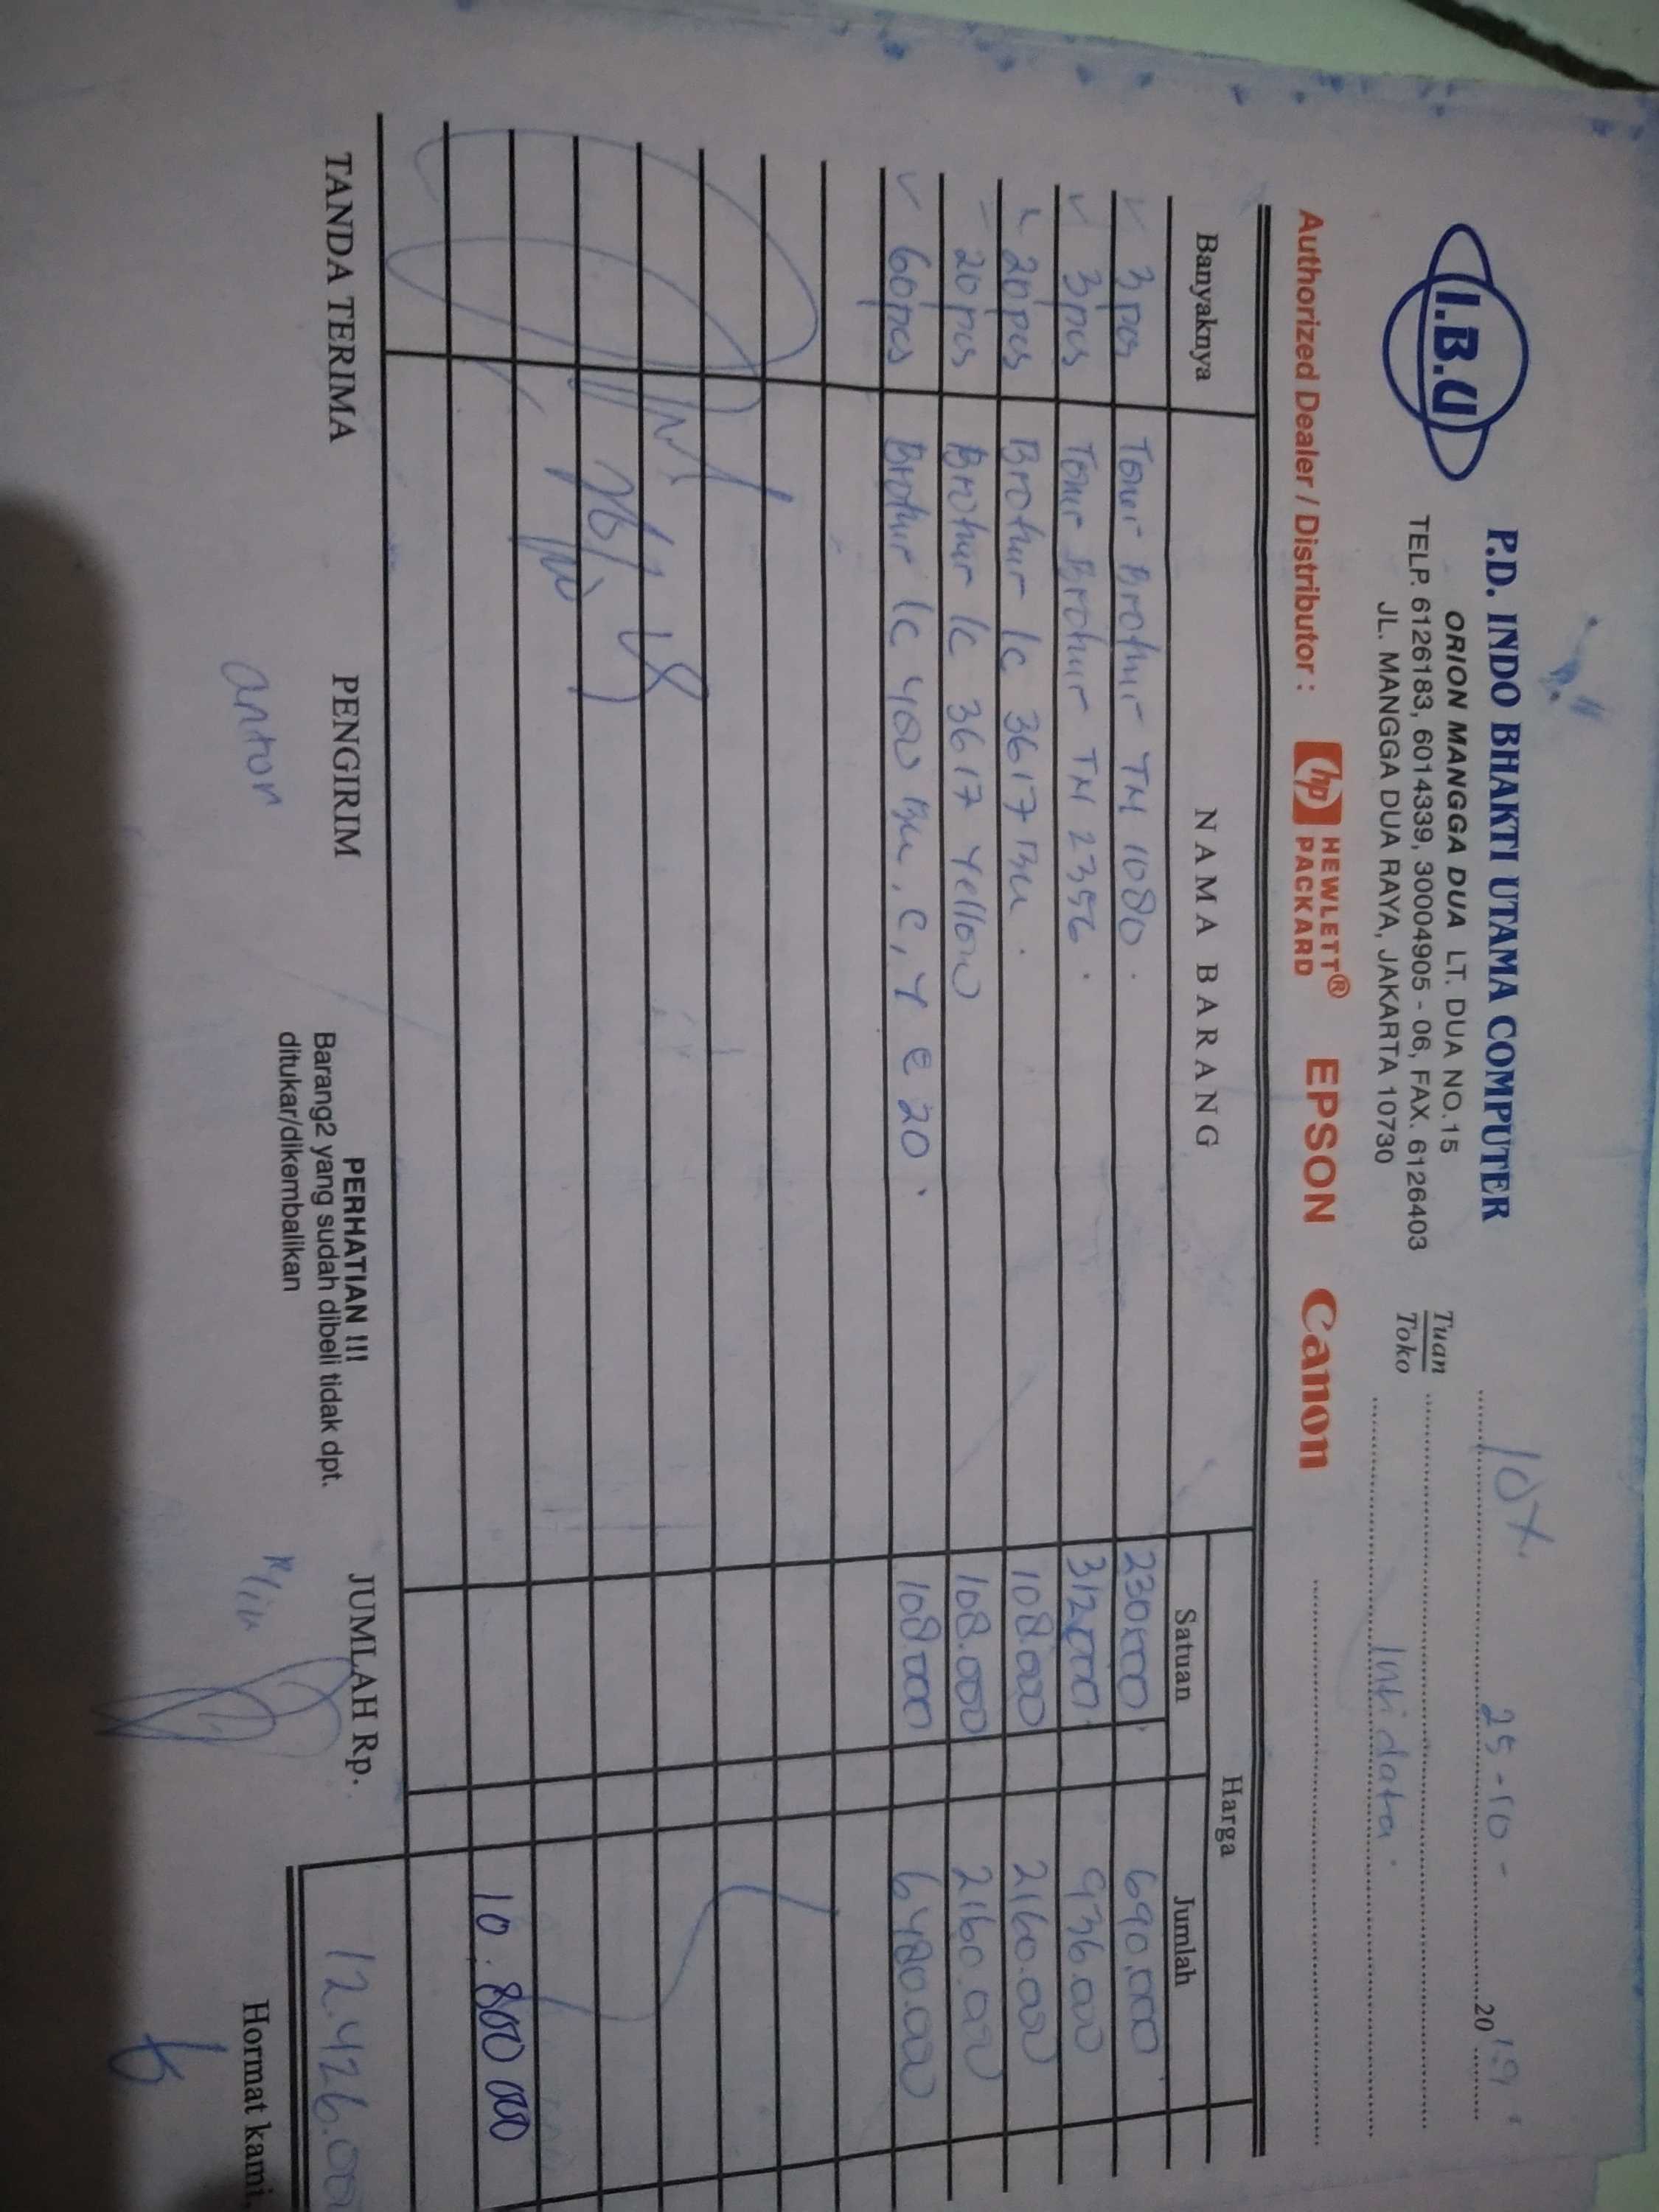 I.B.U
P.D. INDO BHAKTI UTAMA COMPUTER
ORION MANGGA DUA LT. DUA NO.15
TELP. 6126183, 6014339, 30004905 - 06, FAX. 6126403
JL. MANGGA DUA RAYA, JAKARTA 10730
25 - 10 - 2019
Tuan
Toko
Inti data.
Authorized Dealer / Distributor : hp HEWLETT® PACKARD EPSON Canon
Banyaknya NAMA BARANG Harga
Satuan Jumlah
3 pcs Toner Brother TN 1080. 230.000 690.000
3 pcs Toner Brother TN 2356. 312.000 936.000
20 pcs Brother lc 3617 Bu. 108.000 2160.000
20 pcs Brother lc 3617 Yellow 108.000 2160.000
60 pcs Brother lc 400 Bu, C, Y @ 20. 108.000 6480.000
10.800 000
TANDA TERIMA PENGIRIM PERHATIAN !!! JUMLAH Rp. 12.426.000
anton
Barang2 yang sudah dibeli tidak dpt.
ditukar/dikembalikan
Hormat kami,